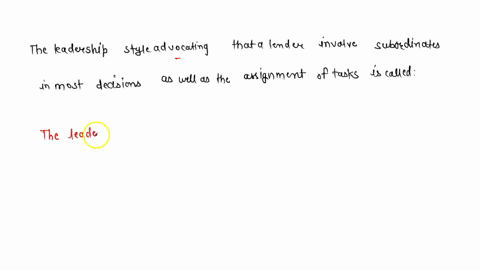 The leadership style advocating that a lender involve subordinates
in most decisions as well as the assignment of tasks is called:
The leade